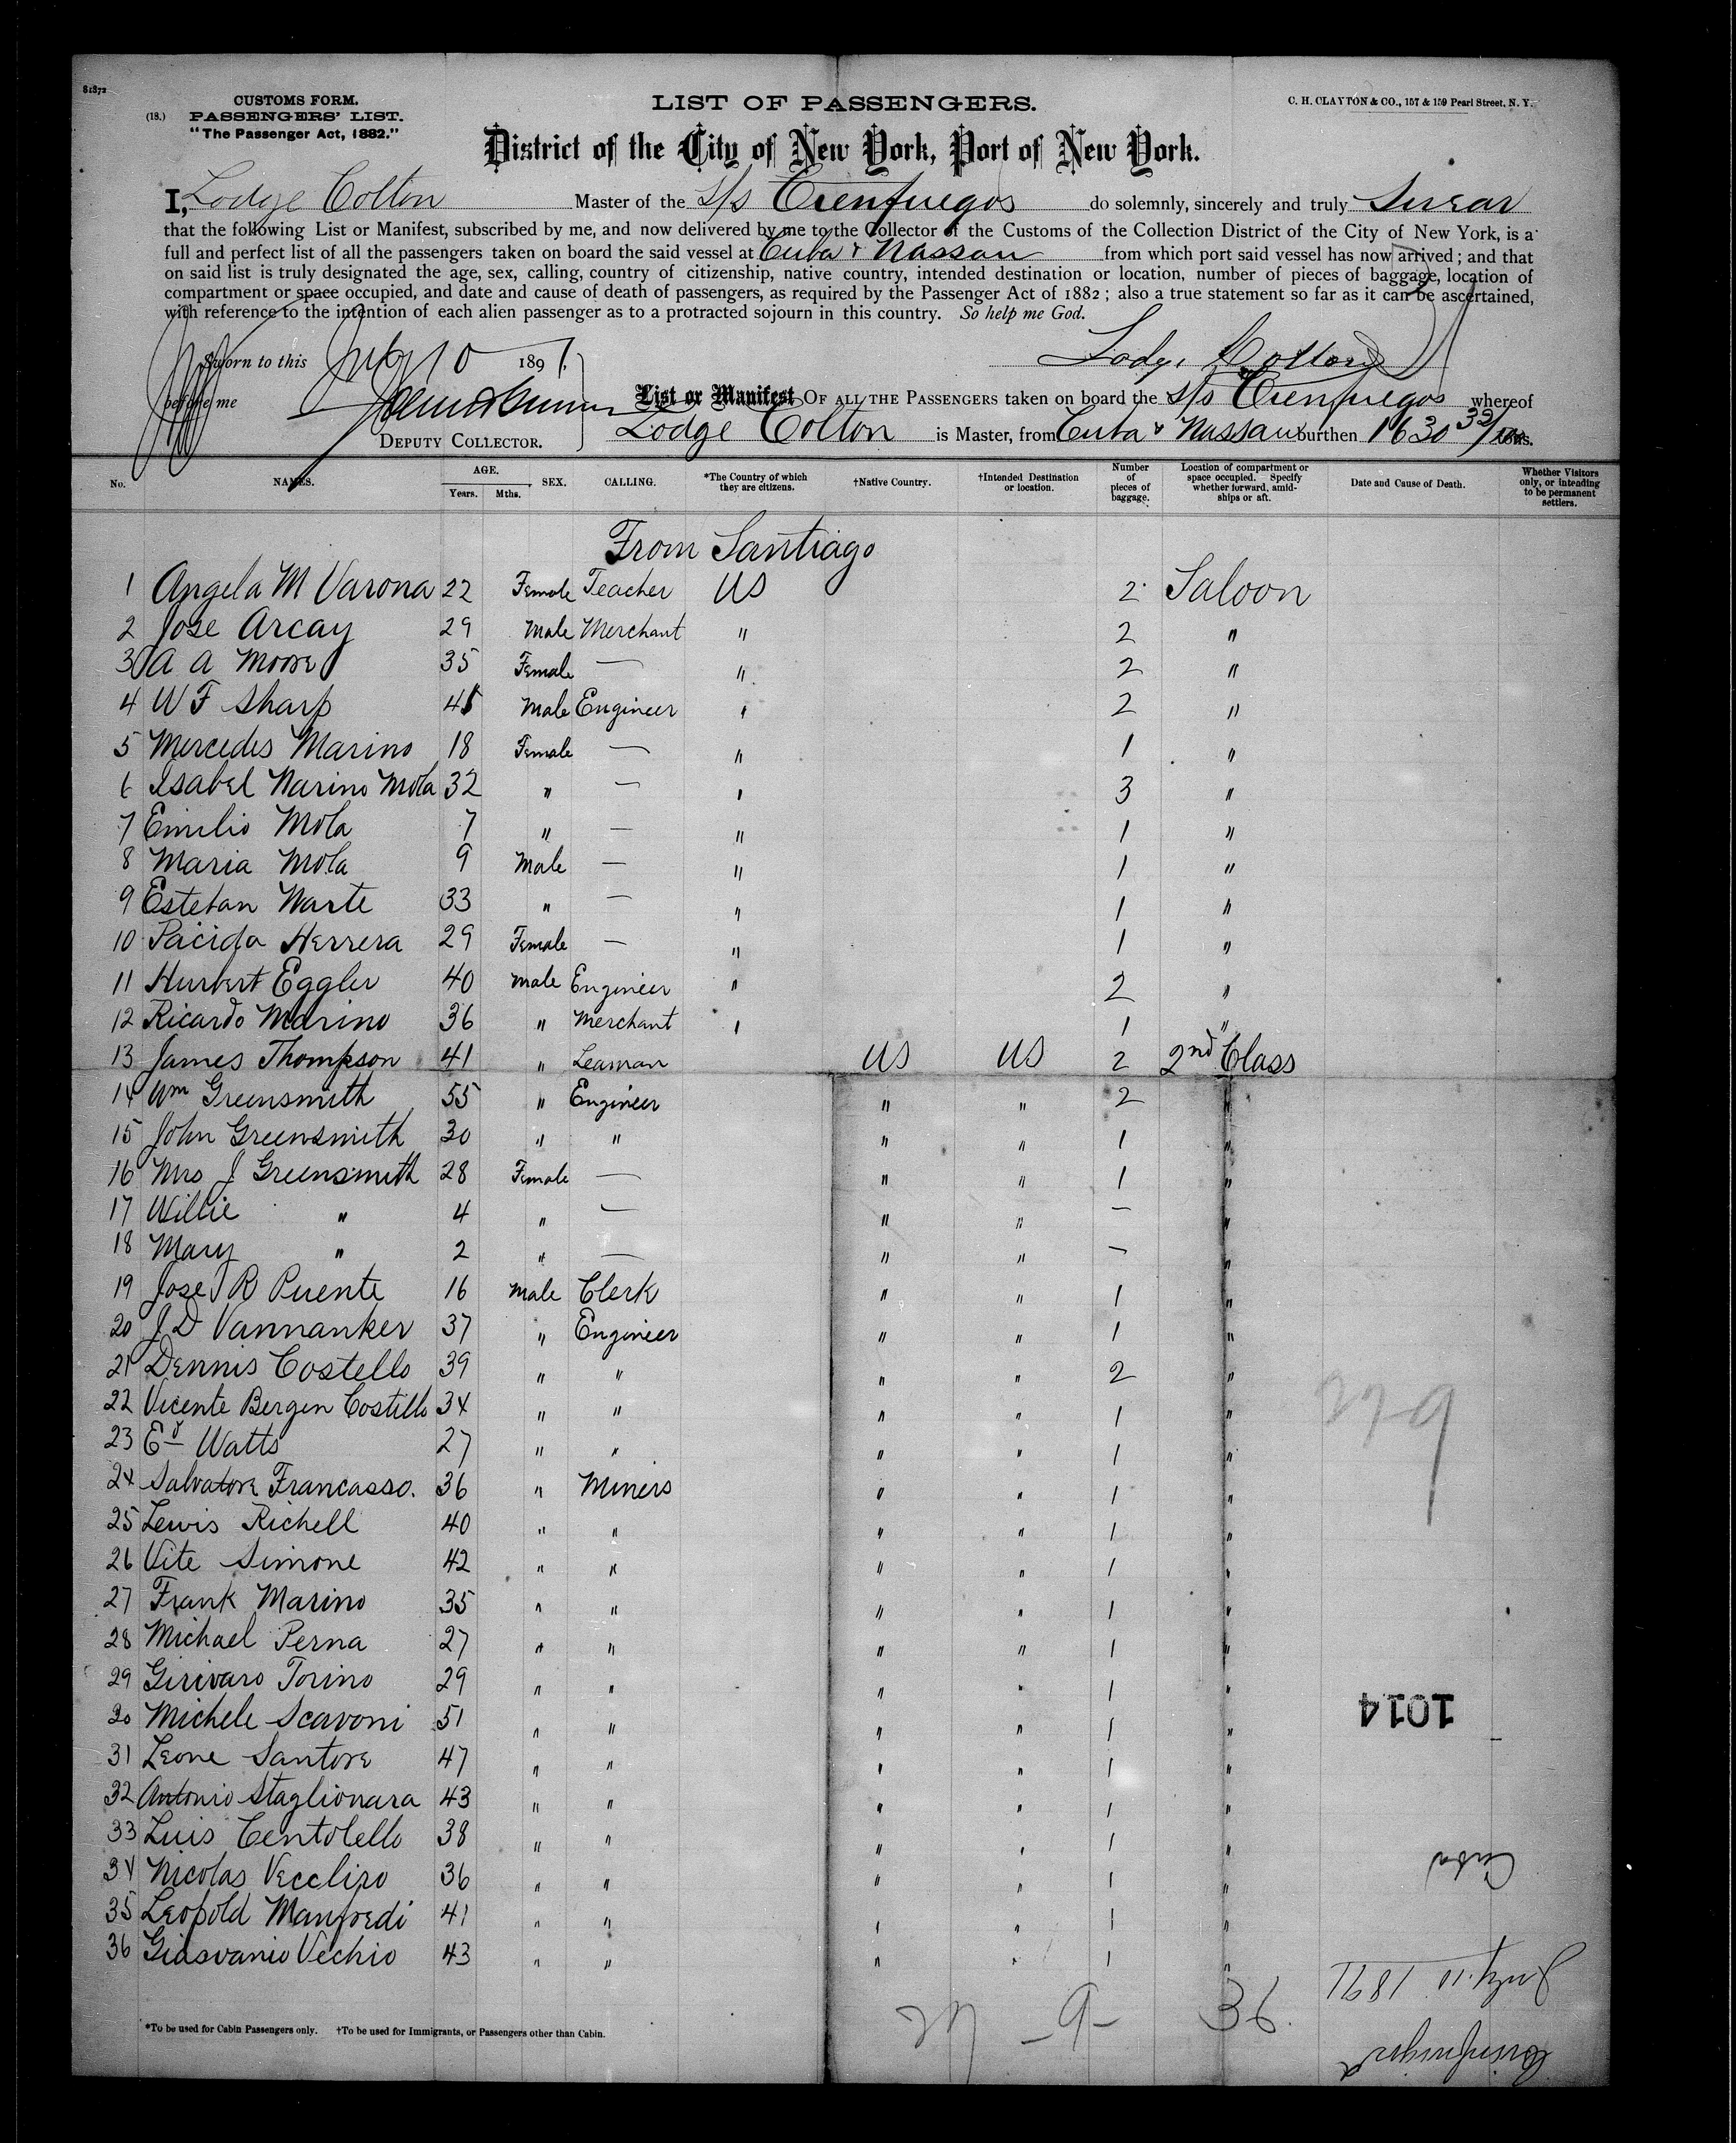 81872
CUSTOMS FORM.
(18.) PASSENGERS' LIST.
"The Passenger Act, 1882."
LIST OF PASSENGERS.
C. H. CLAYTON & CO., 157 & 159 Pearl Street, N. Y.
District of the City of New York, Port of New York.
I, Lodge Colton Master of the S/S Cienfuegos do solemnly, sincerely and truly Swear
that the following List or Manifest, subscribed by me, and now delivered by me to the Collector of the Customs of the Collection District of the City of New York, is a
full and perfect list of all the passengers taken on board the said vessel at Cuba & Nassau from which port said vessel has now arrived; and that
on said list is truly designated the age, sex, calling, country of citizenship, native country, intended destination or location, number of pieces of baggage, location of
compartment or space occupied, and date and cause of death of passengers, as required by the Passenger Act of 1882; also a true statement so far as it can be ascertained,
with reference to the intention of each alien passenger as to a protracted sojourn in this country. So help me God.
Sworn to this July 10 1891. Lodge Colton
before me
List or Manifest OF ALL THE PASSENGERS taken on board the S/S Cienfuegos whereof
DEPUTY COLLECTOR. Lodge Colton is Master, from Cuba & Nassau burthen 1630 tons.
No. NAMES. AGE. Years. Mths. SEX. CALLING. *The Country of which they are citizens. †Native Country. †Intended Destination or location. Number of pieces of baggage. Location of compartment or space occupied. Specify whether forward, amidships or aft. Date and Cause of Death. Whether Visitors only, or intending to be permanent settlers.
From Santiago
1 Angela M Varona 22 Female Teacher US 2 Saloon
2 Jose Arcay 29 Male Merchant " 2 "
3 A A Moore 35 Female — " 2 "
4 W F Sharp 45 Male Engineer " 2 "
5 Mercedes Marino 18 Female — " 1 "
6 Isabel Marino Mola 32 " — " 3 "
7 Emilio Mola 7 " — " 1 "
8 Maria Mola 9 Male — " 1 "
9 Esteban Warte 33 " — " 1 "
10 Pacida Herrera 29 Female — " 1 "
11 Hurbert Eggler 40 Male Engineer " 2 "
12 Ricardo Marino 36 " Merchant " 1 "
13 James Thompson 41 " Seaman US US 2 2nd Class
14 Wm Greensmith 55 " Engineer " " 2 "
15 John Greensmith 30 " " " " 1 "
16 Mrs J Greensmith 28 Female — " " 1 "
17 Willie " 4 " — " " — "
18 Mary " 2 " — " " — "
19 Jose R Puente 16 Male Clerk " " 1 "
20 J D Vannanker 37 " Engineer " " 1 "
21 Dennis Costello 39 " " " " 2 "
22 Vicente Bergen Costillo 34 " " " " 1 "
23 Ed Watts 27 " " " " 1 "
24 Salvatore Francasso. 36 " Miners " " 1 "
25 Lewis Richell 40 " " " " 1 "
26 Vite Simone 42 " " " " 1 "
27 Frank Marino 35 " " " " 1 "
28 Michael Perna 27 " " " " 1 "
29 Girivaro Torino 29 " " " " 1 "
30 Michele Scavoni 51 " " " " 1 "
31 Leone Santore 47 " " " " 1 "
32 Antonio Staglionara 43 " " " " 1 "
33 Luis Centolello 38 " " " " 1 "
34 Nicolas Veccliro 36 " " " " 1 "
35 Leopold Manfredi 41 " " " " 1 "
36 Giasvanio Vechio 43 " " " " 1 "
1014
Cuba
July 10 1891
Cienfuegos
— 9 — 36.
*To be used for Cabin Passengers only. †To be used for Immigrants, or Passengers other than Cabin.